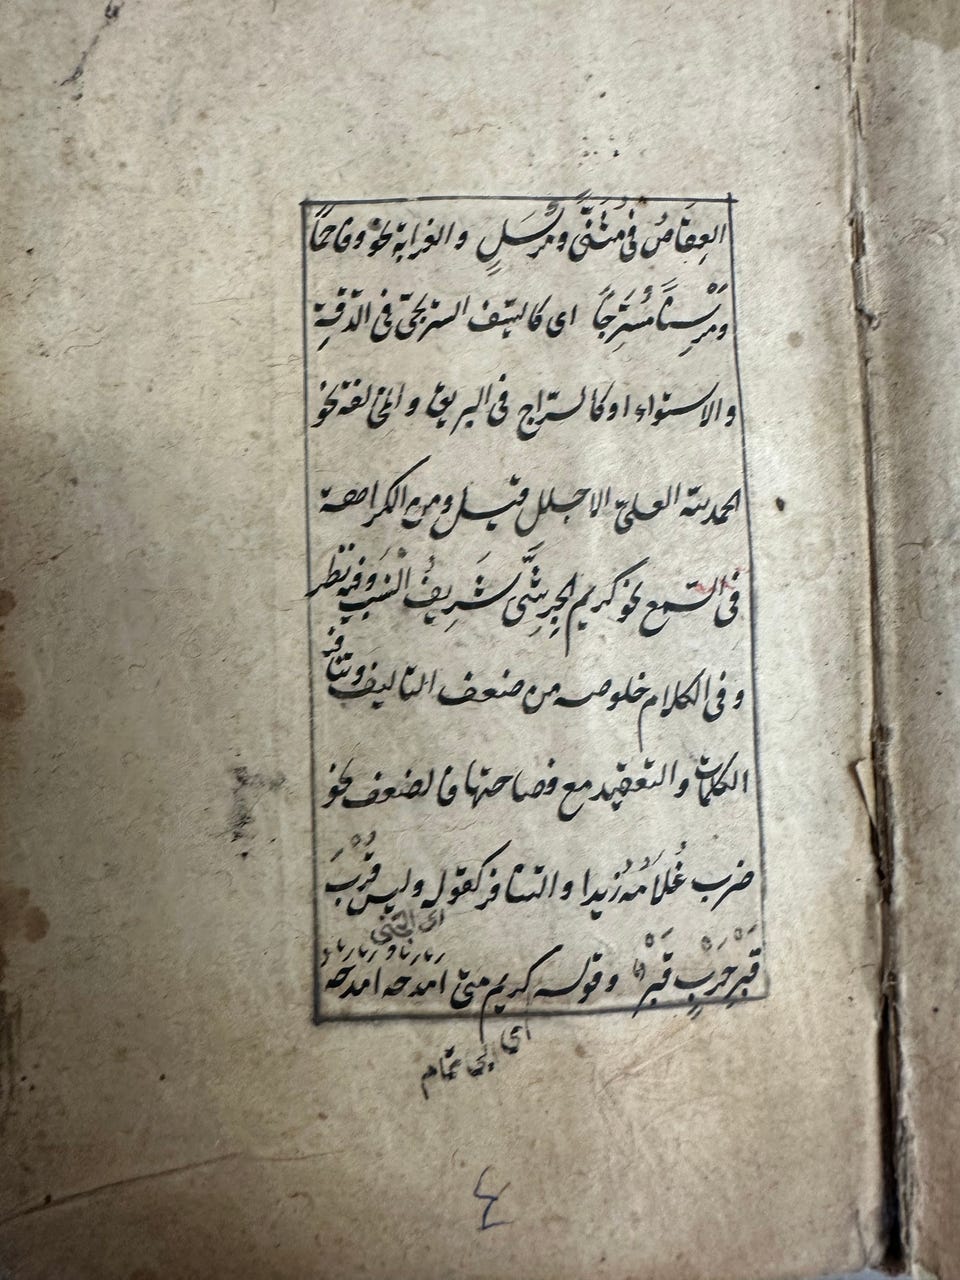 العِقَاصُ فى مُثَنًّى ومُرْسَلٍ والغرابة نحو وفاحمًا
ومَرْسِنًا مُسَرَّجًا اى كالسيف السريجى فى الدقة
والاستواء او كالسّراج فى البريق والمخالفة نحو
الحمد لله العلىّ الاجلل قيل ومن الكراهة
فى السمع نحو كريم الجِرِشَّى شَرِيفُ النَّسَب وفيه نظر
وفى الكلام خلوصه من ضعف التاليف وتنافر
الكلمات والتعقيد مع فصاحتها فالضعف نحو
ضرب غُلَامُهُ زيدا والتنافر كقوله وليس قُرْبَ
اى الجنى
قَبْرِ حَرْبٍ قَبْرُ وقوله كريم متى امدحه امدحه
اى ابى تمام
٤